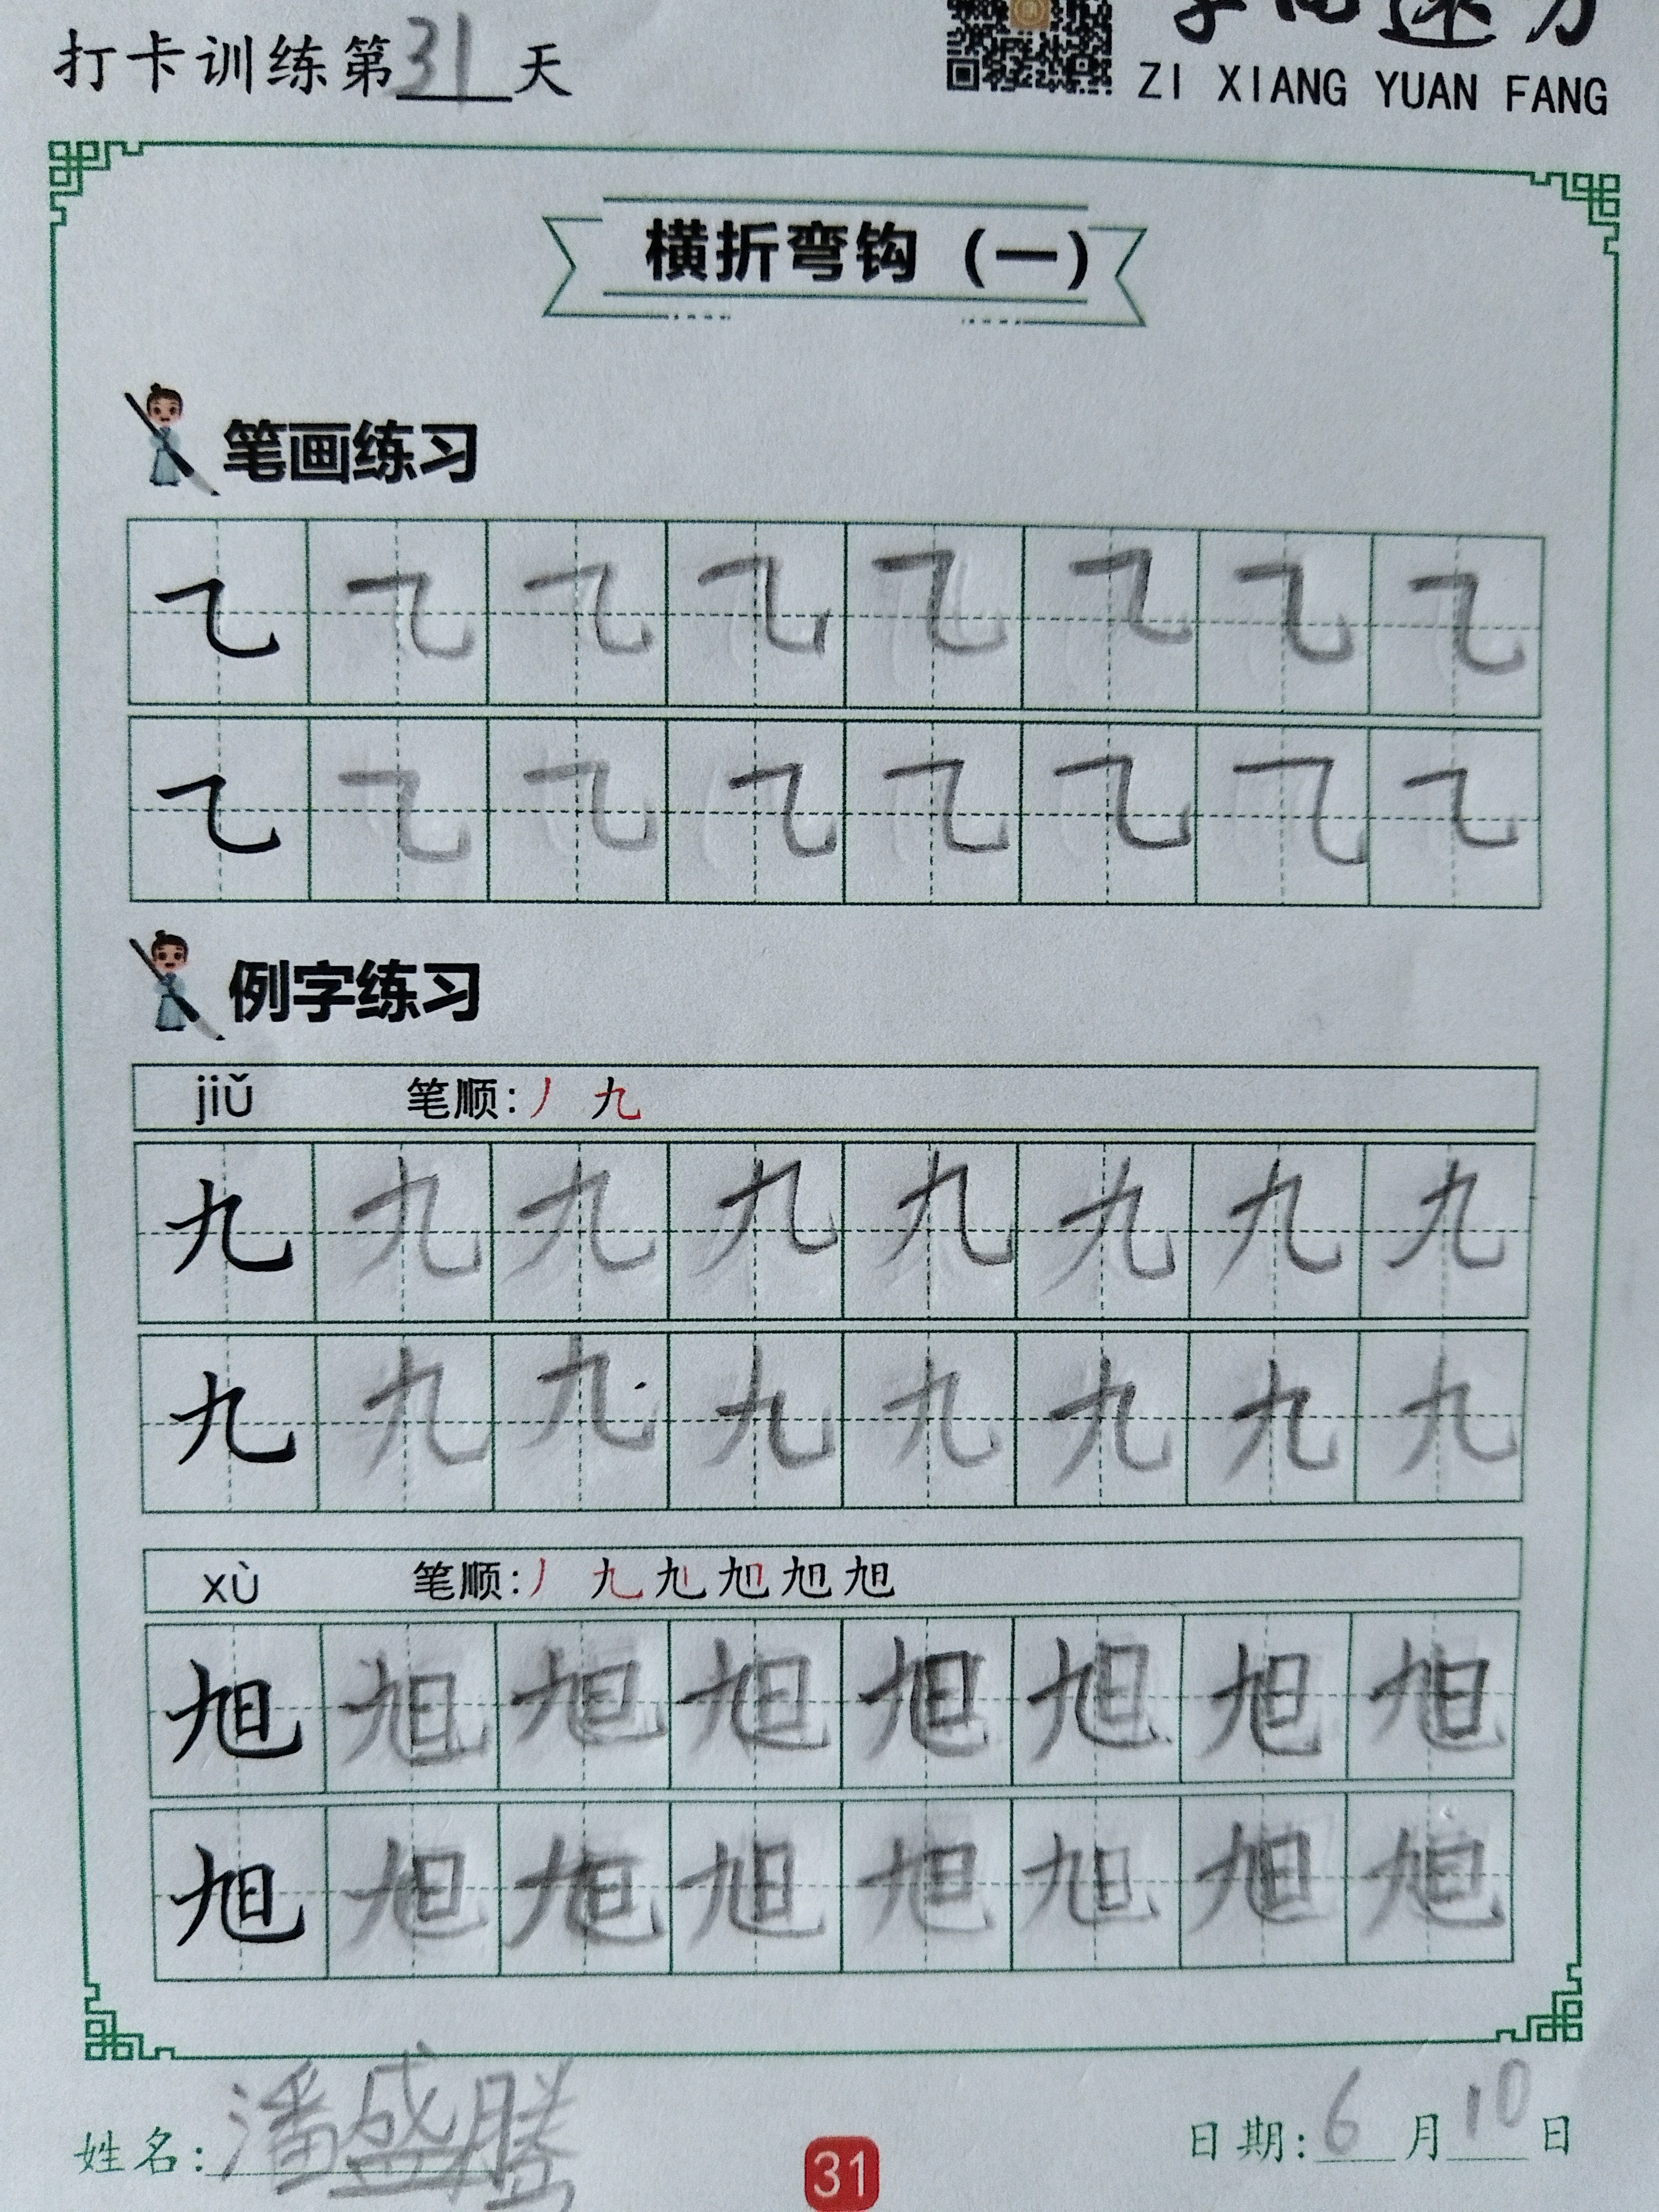 打卡训练第31天
ZI XIANG YUAN FANG
横折弯钩（一）
笔画练习
㇈ ㇈ ㇈ ㇈ ㇈ ㇈ ㇈ ㇈
㇈ ㇈ ㇈ ㇈ ㇈ ㇈ ㇈ ㇈
例字练习
jiǔ 笔顺：丿 九
九 九 九 九 九 九 九 九
九 九 九 九 九 九 九 九
xù 笔顺：丿 九 旭
旭 旭 旭 旭 旭 旭 旭 旭
旭 旭 旭 旭 旭 旭 旭 旭
姓名：潘盛腾
31
日期：6月10日